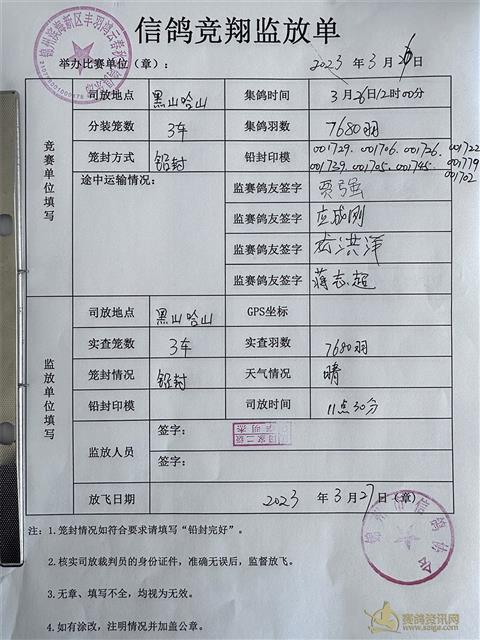 信鸽竞翔监放单
举办比赛单位（章）： 2023 年 3 月 日
竞赛单位填写
司放地点 黑山哈山 集鸽时间 3月26日12时00分
分装笼数 3车 集鸽羽数 7680羽
笼封方式 铅封 铅封印模 001729. 001706. 001726. 001722
001739. 001705. 001745. 001779
001702
途中运输情况：
监赛鸽友签字 贾强
监赛鸽友签字 应成刚
监赛鸽友签字 洪洋
监赛鸽友签字 蒋志超
监放单位填写
司放地点 黑山哈山 GPS坐标
实查笼数 3车 实查羽数 7680羽
笼封情况 铅封 天气情况 晴
铅封印模 司放时间 11点30分
监放人员 签字： 国家二级
签字：
放飞日期 2023 年 3 月 27 日（章）
注：1.笼封情况如符合要求请填写“铅封完好”。
2.核实司放裁判员的身份证件，准确无误后，监督放飞。
3.无章、填写不全，均视为无效。
4.如有涂改，注明情况并加盖公章。
赛鸽资讯网
www.saige.com